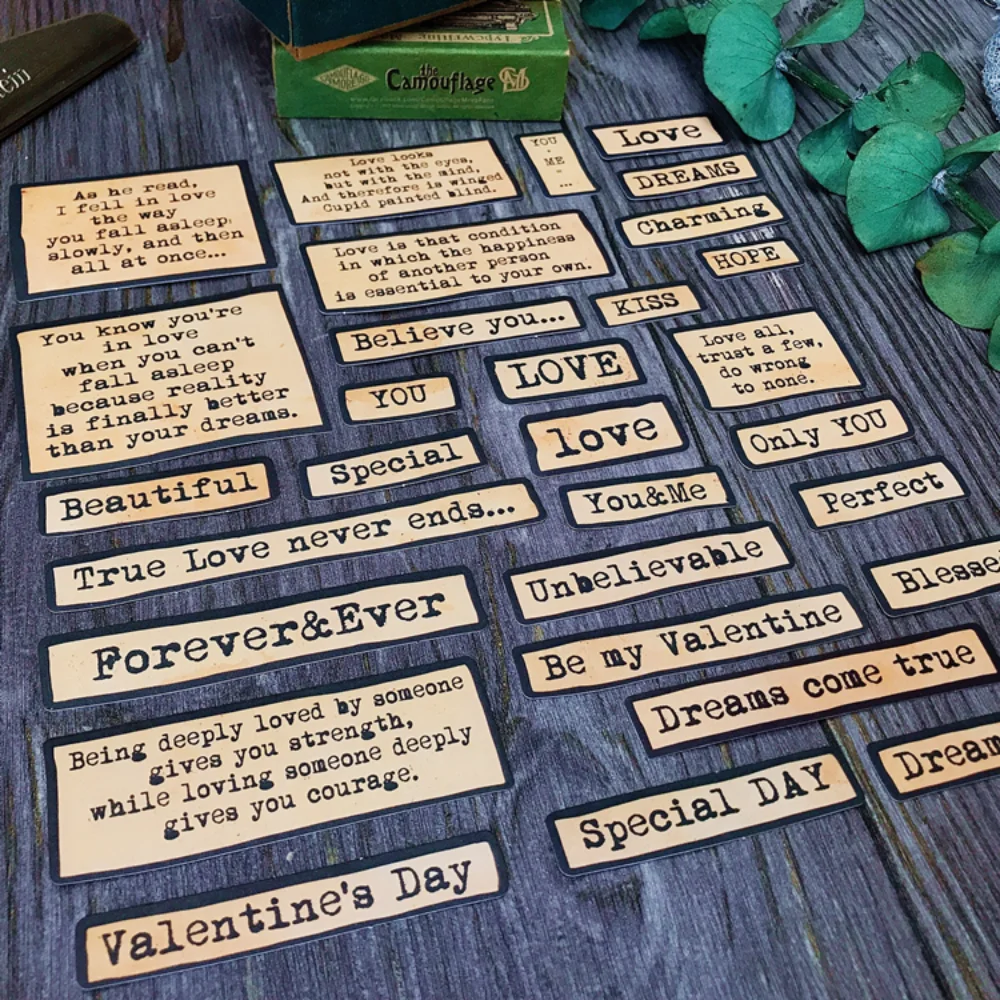 Typewriting
the
Camouflage
CAMOUFLAGE
As he read,
I fell in love
the way
you fall asleep:
slowly, and then
all at once...
Love looks
not with the eyes,
but with the mind,
And therefore is winged
Cupid painted blind.
YOU
+
ME
=
...
Love
DREAMS
Charming
HOPE
Love is that condition
in which the happiness
of another person
is essential to your own.
KISS
Believe you...
You know you're
in love
when you can't
fall asleep
because reality
is finally better
than your dreams.
YOU
LOVE
Love all,
trust a few,
do wrong
to none.
love
Only YOU
Special
Beautiful
You&Me
Perfect
True Love never ends...
Unbelievable
Blesse
Forever&Ever
Be my Valentine
Dreams come true
Being deeply loved by someone
gives you strength,
while loving someone deeply
gives you courage.
Dream
Special DAY
Valentine's Day